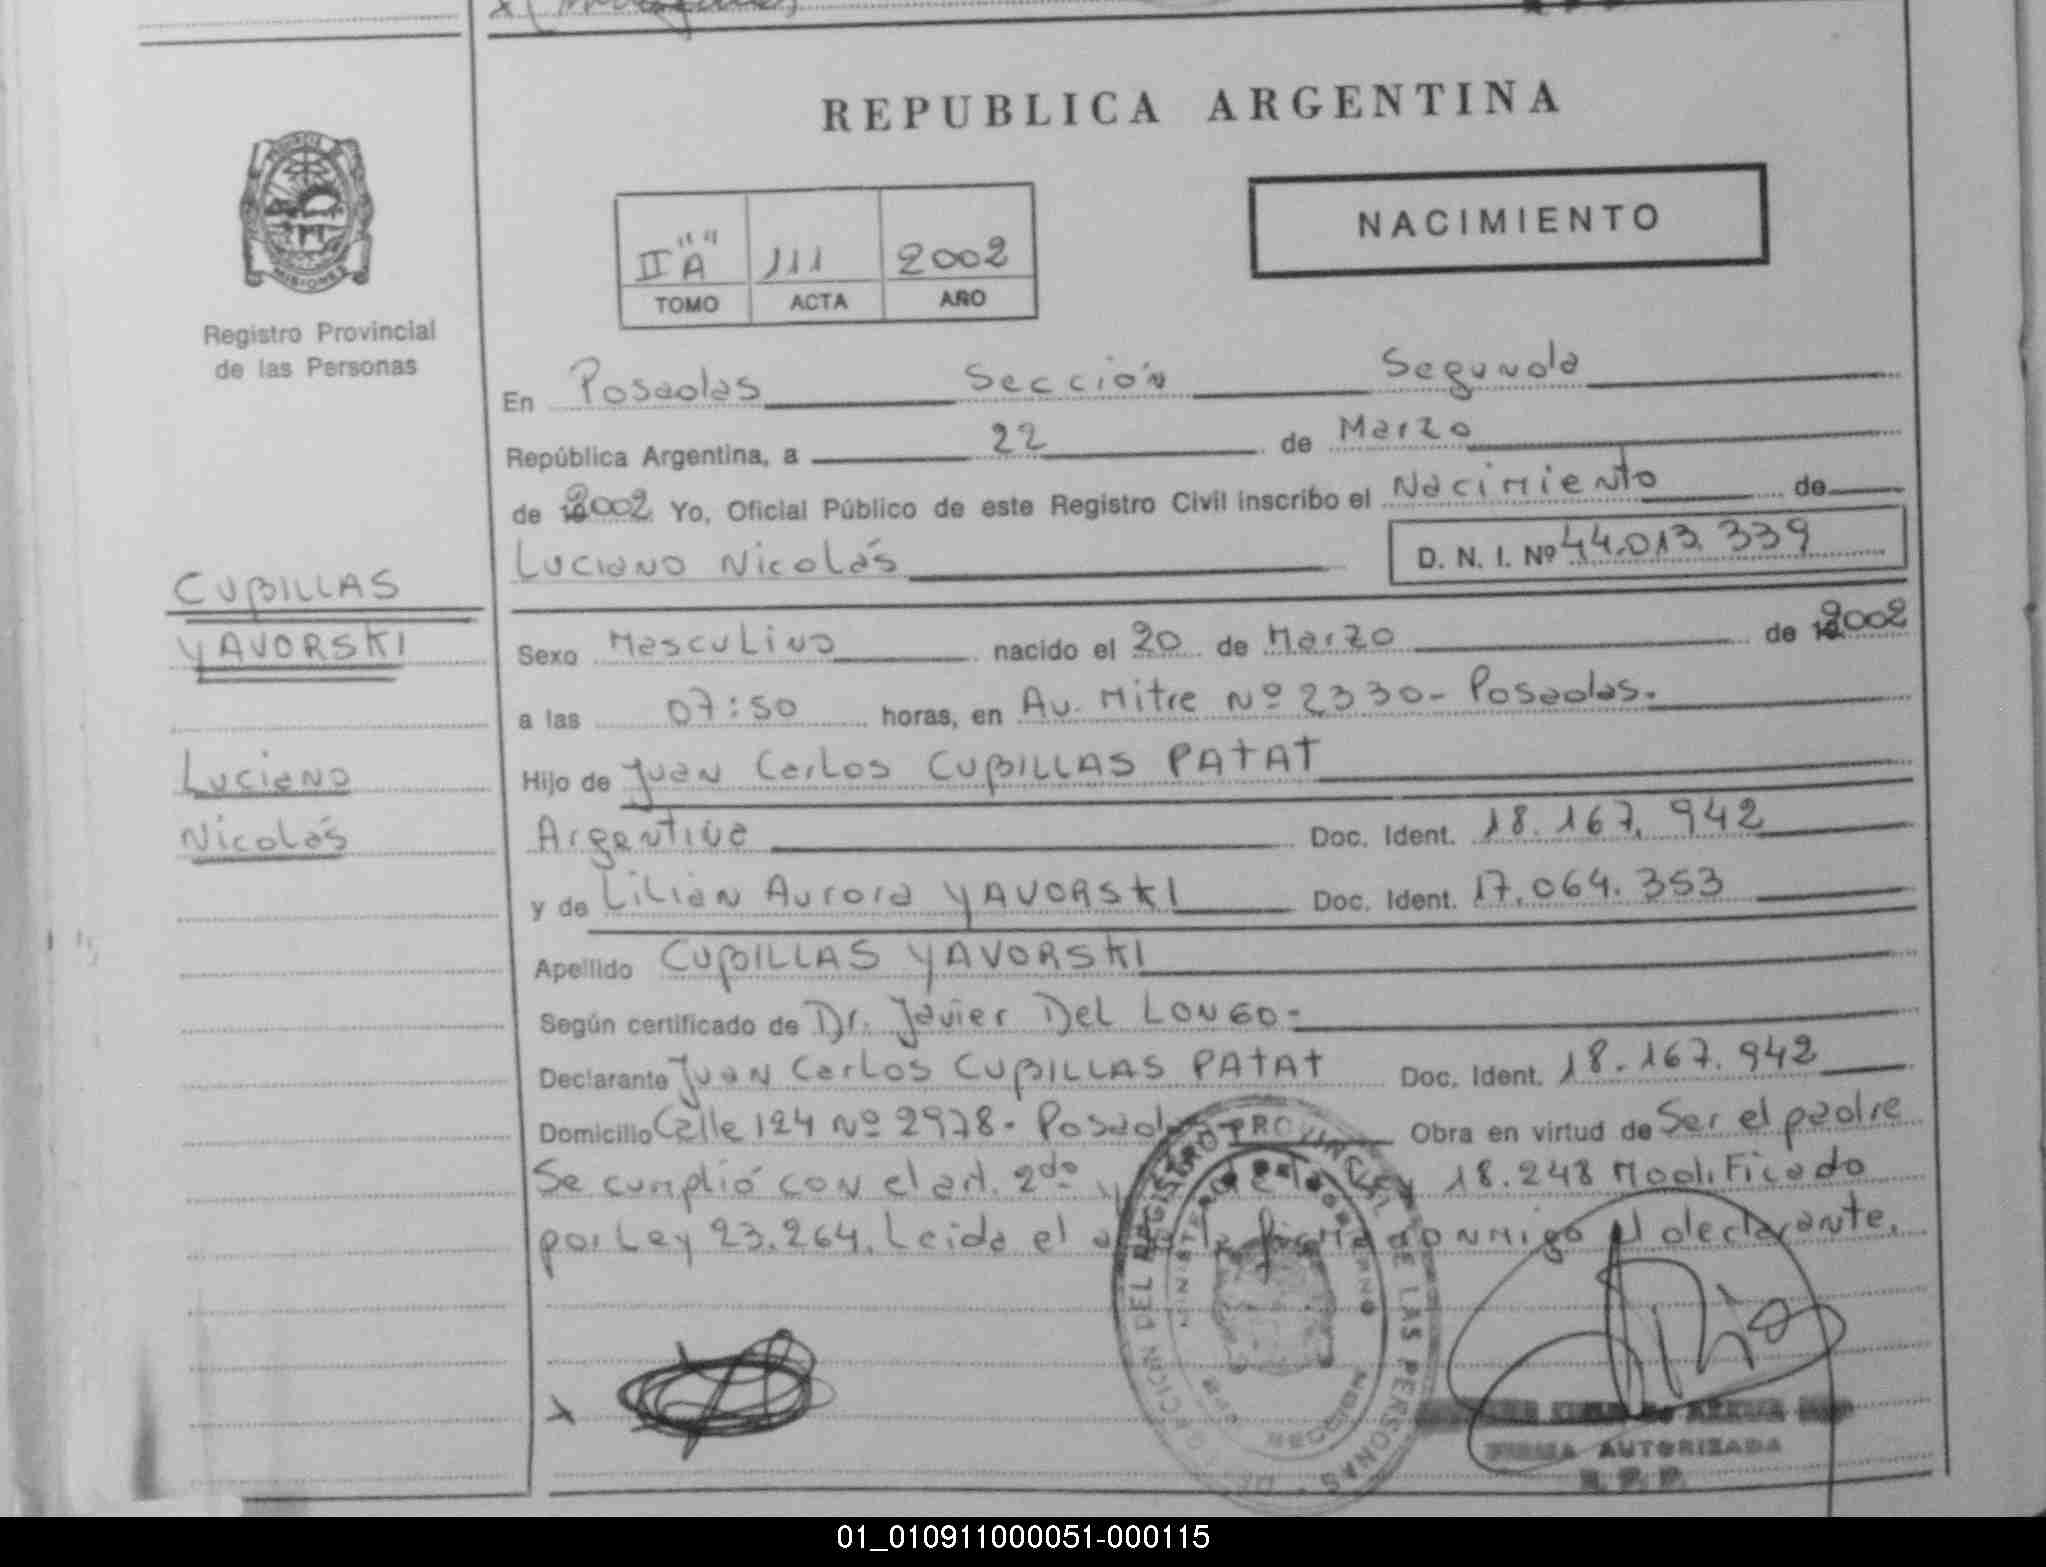 REPUBLICA ARGENTINA
NACIMIENTO
II "A" 111 2002
TOMO ACTA AÑO
MISIONES
Registro Provincial
de las Personas
En Posadas Sección Segunda
República Argentina, a 22 de Marzo
de 2002 Yo, Oficial Público de este Registro Civil inscribo el Nacimiento de
Luciano Nicolás D. N. I. Nº 44.013.339
CUBILLAS
YAVORSKI
Luciano
Nicolás
Sexo Masculino nacido el 20 de Marzo de 2002
a las 07:50 horas, en Av. Mitre Nº 2330- Posadas.
Hijo de Juan Carlos CUBILLAS PATAT
Argentina Doc. Ident. 18.167.942
y de Lilian Aurora YAVORSKI Doc. Ident. 17.064.353
Apellido CUBILLAS YAVORSKI
Según certificado de Dr. Javier DEL LONGO-
Declarante Juan Carlos CUBILLAS PATAT Doc. Ident. 18.167.942
Domicilio Calle 124 Nº 2978- Posadas Obra en virtud de Ser el padre
Se cumplió con el art. 2do de la Ley 18.248 Modificado
por Ley 23.264. Leida el acta la firma conmigo el declarante.
DIRECCION DEL REGISTRO PROVINCIAL DE LAS PERSONAS
MINISTERIO DE GOBIERNO
MISIONES
FIRMA AUTORIZADA
R. P. P.
01_010911000051-000115